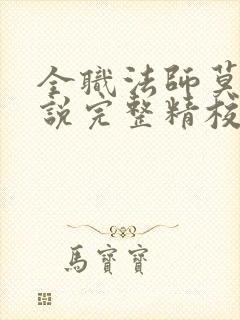 全職法師莫
說完整精校
馬寶寶